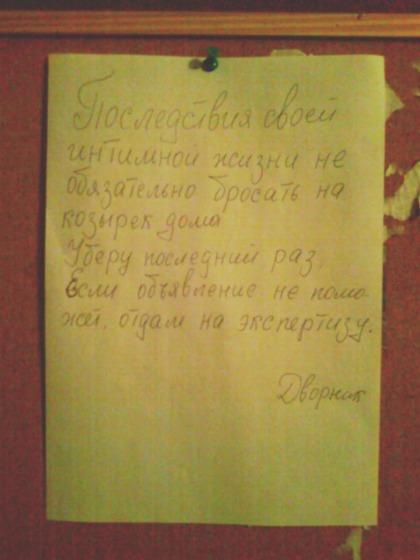 Последствия своей
интимной жизни не
обязательно бросать на
козырек дома
Уберу последний раз,
Если объявление не помо-
жет, отдам на экспертизу.
Дворник